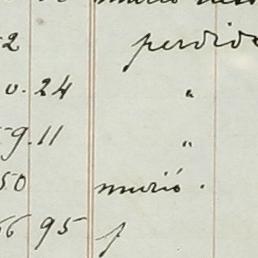 2 perdido
0. 24 "
59. 11 "
50 murió.
56 95 f